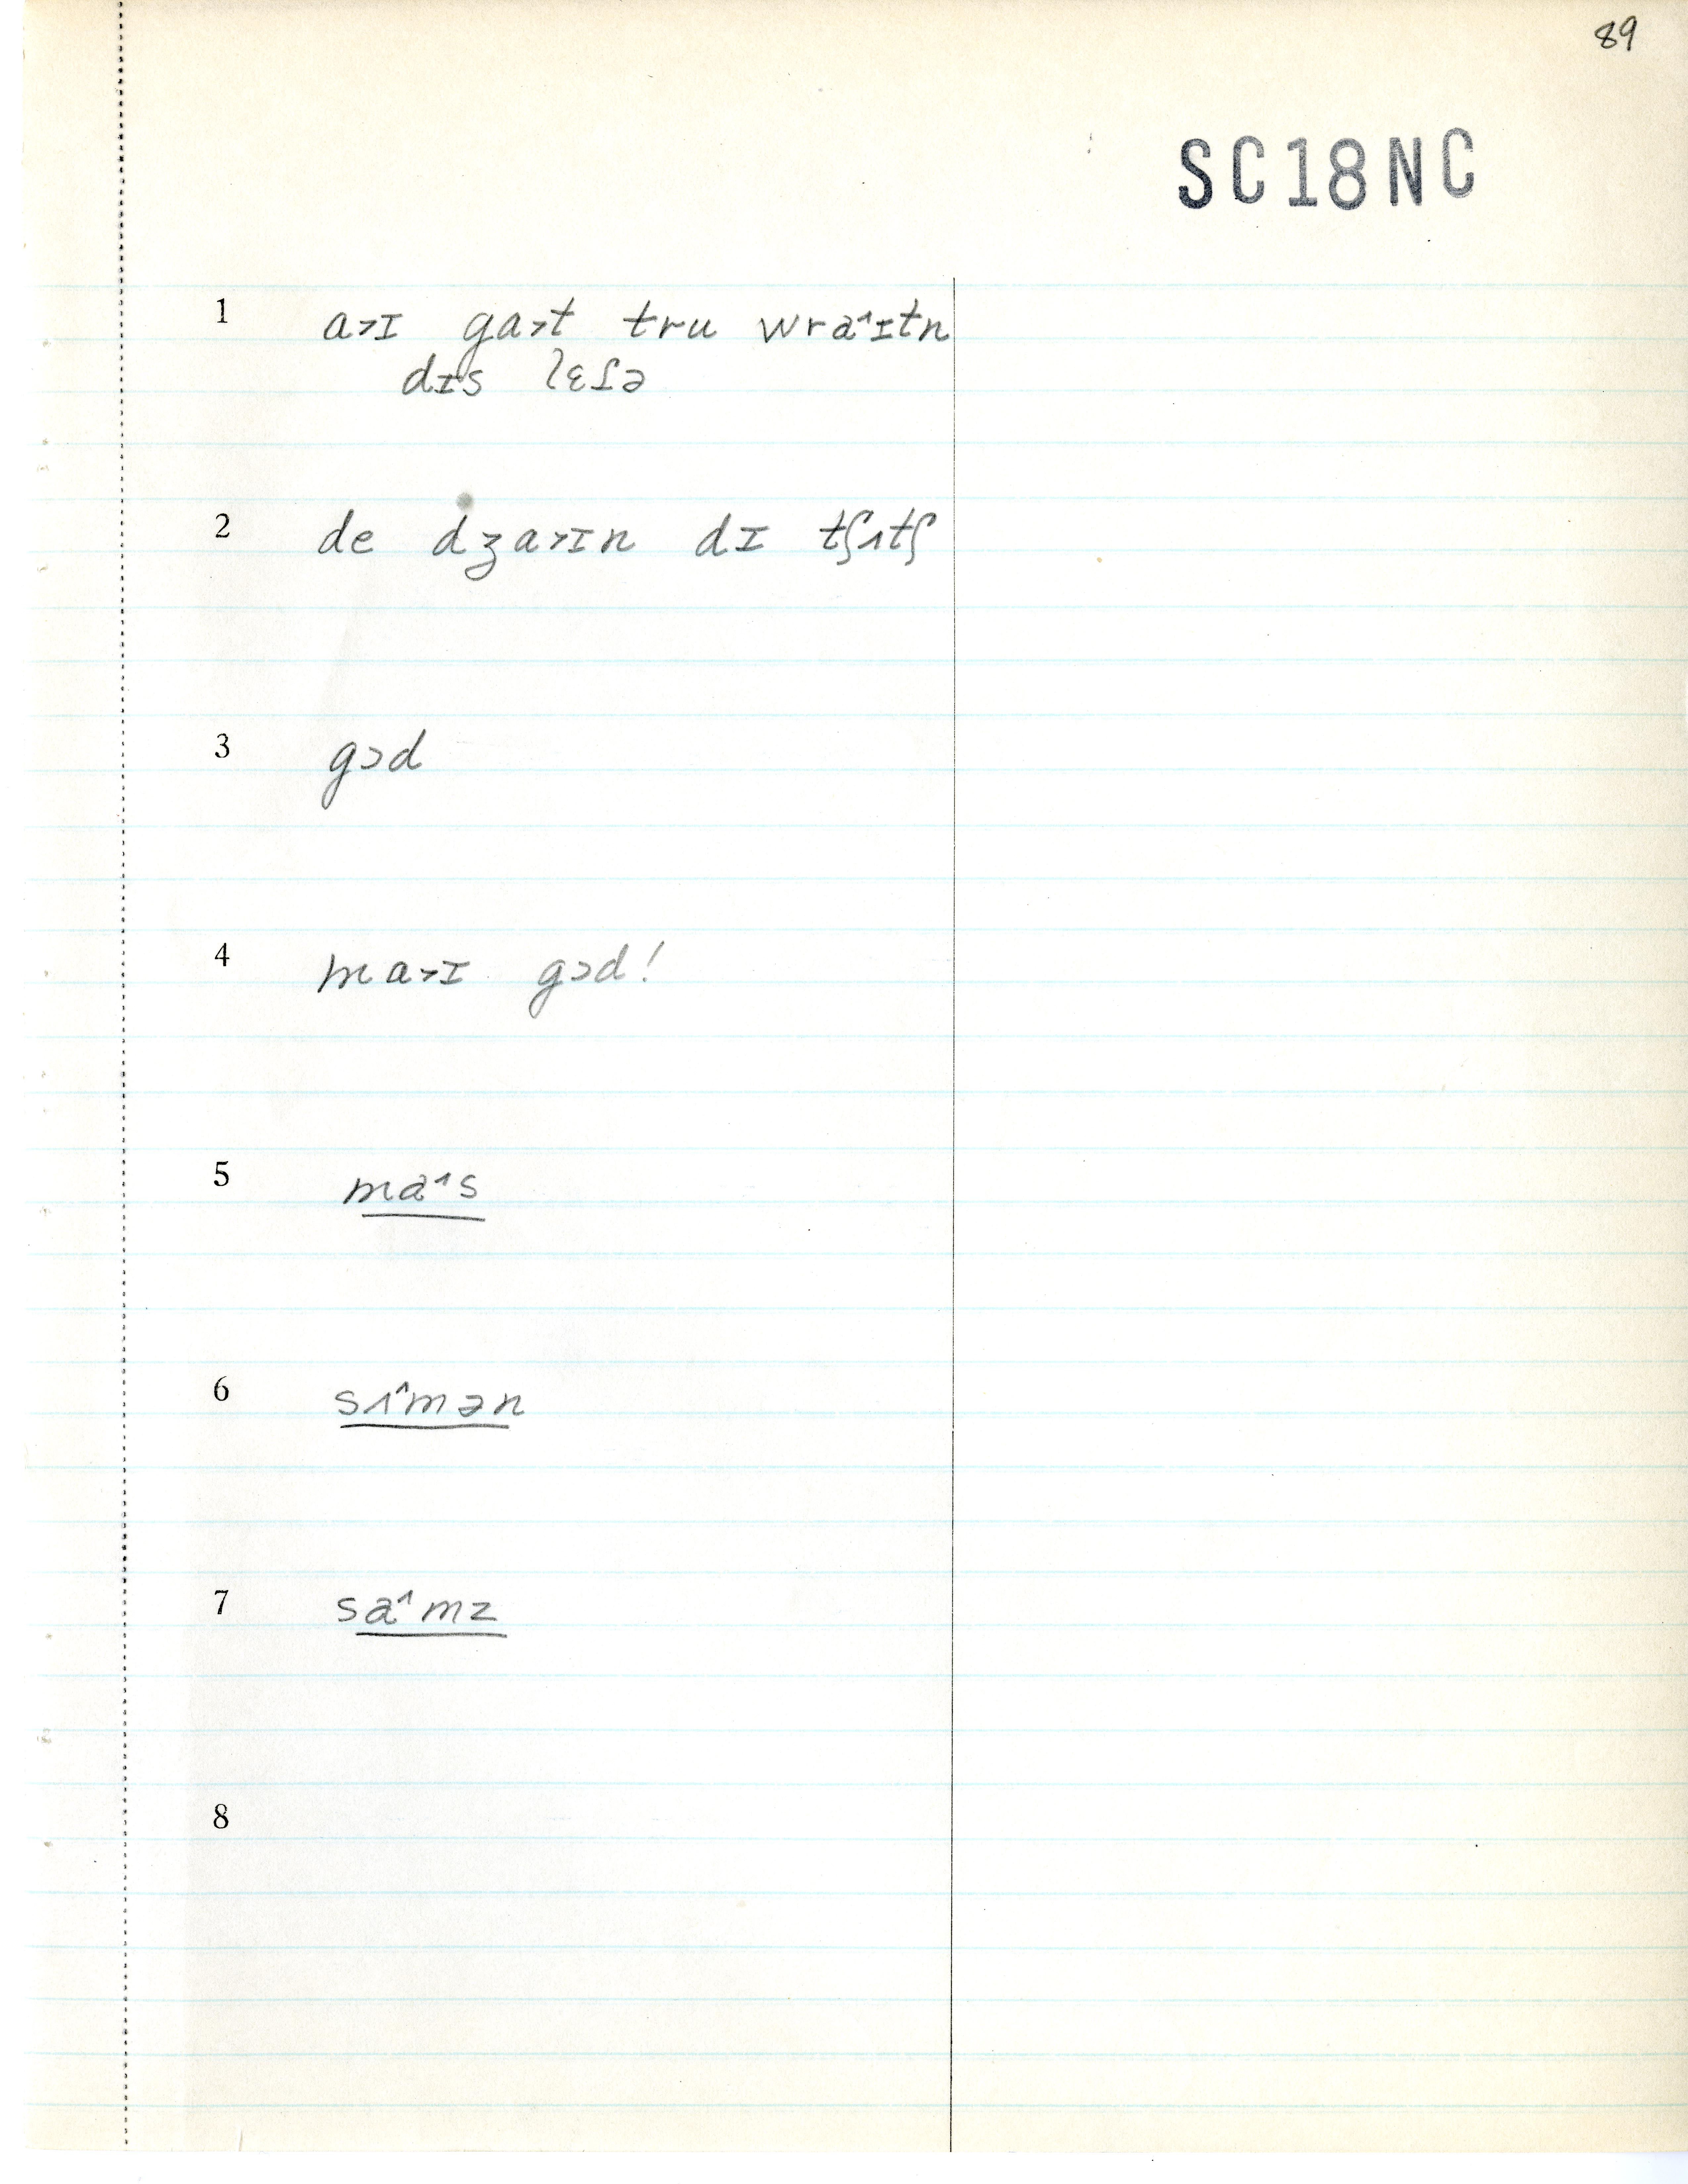 89
SC18NC
1 a˃ɪ ga˃t tru wra˄ɪtn
dɪs lɛʃə
2 de dʒa˃ɪn dɪ tʃʌtʃ
3 gɔd
4 ma˃ɪ gɔd!
5 ma˄s
6 sʌ˄mən
7 sa˄mz
8